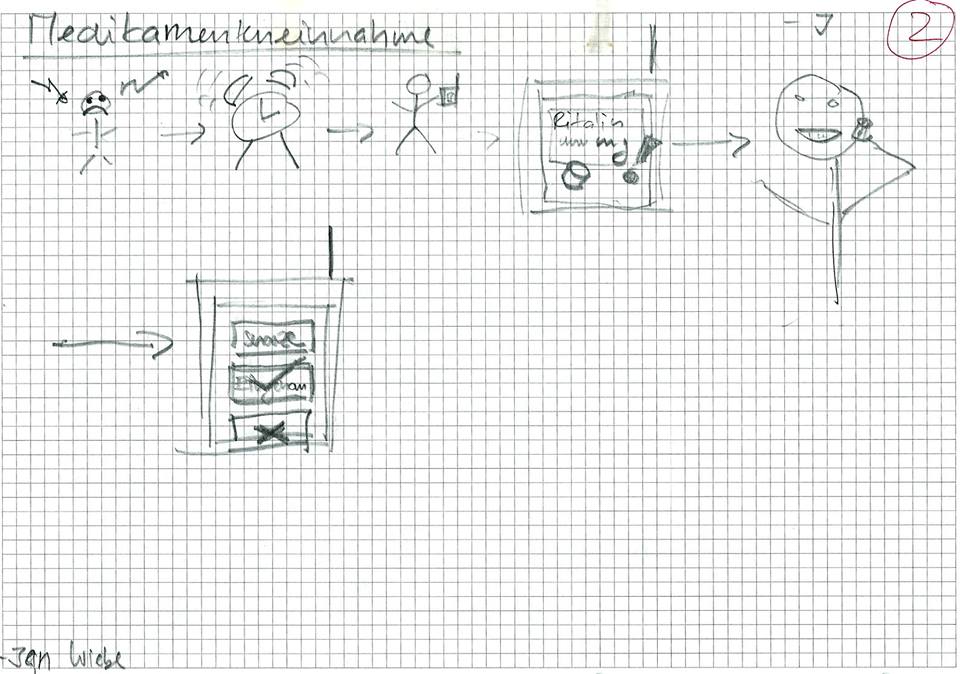 Medikamenteneinnahme
- J
2
Ritalin
mg
snooze
- Jan Wiebe